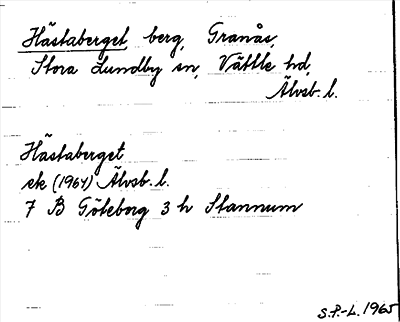 Hästaberget berg, Granås,
Stora Lundby sn, Vättle hd,
Älvsb. l.
Hästaberget
ek (1964) Älvsb. l.
7 B Göteborg 3 h Stannum
S.P.-L. 1965